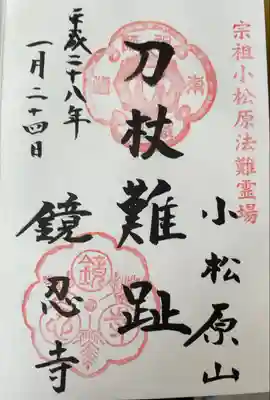 宗祖小松原法難霊場
小松原山
刀杖難趾
鏡忍寺
平成二十八年
一月二十四日